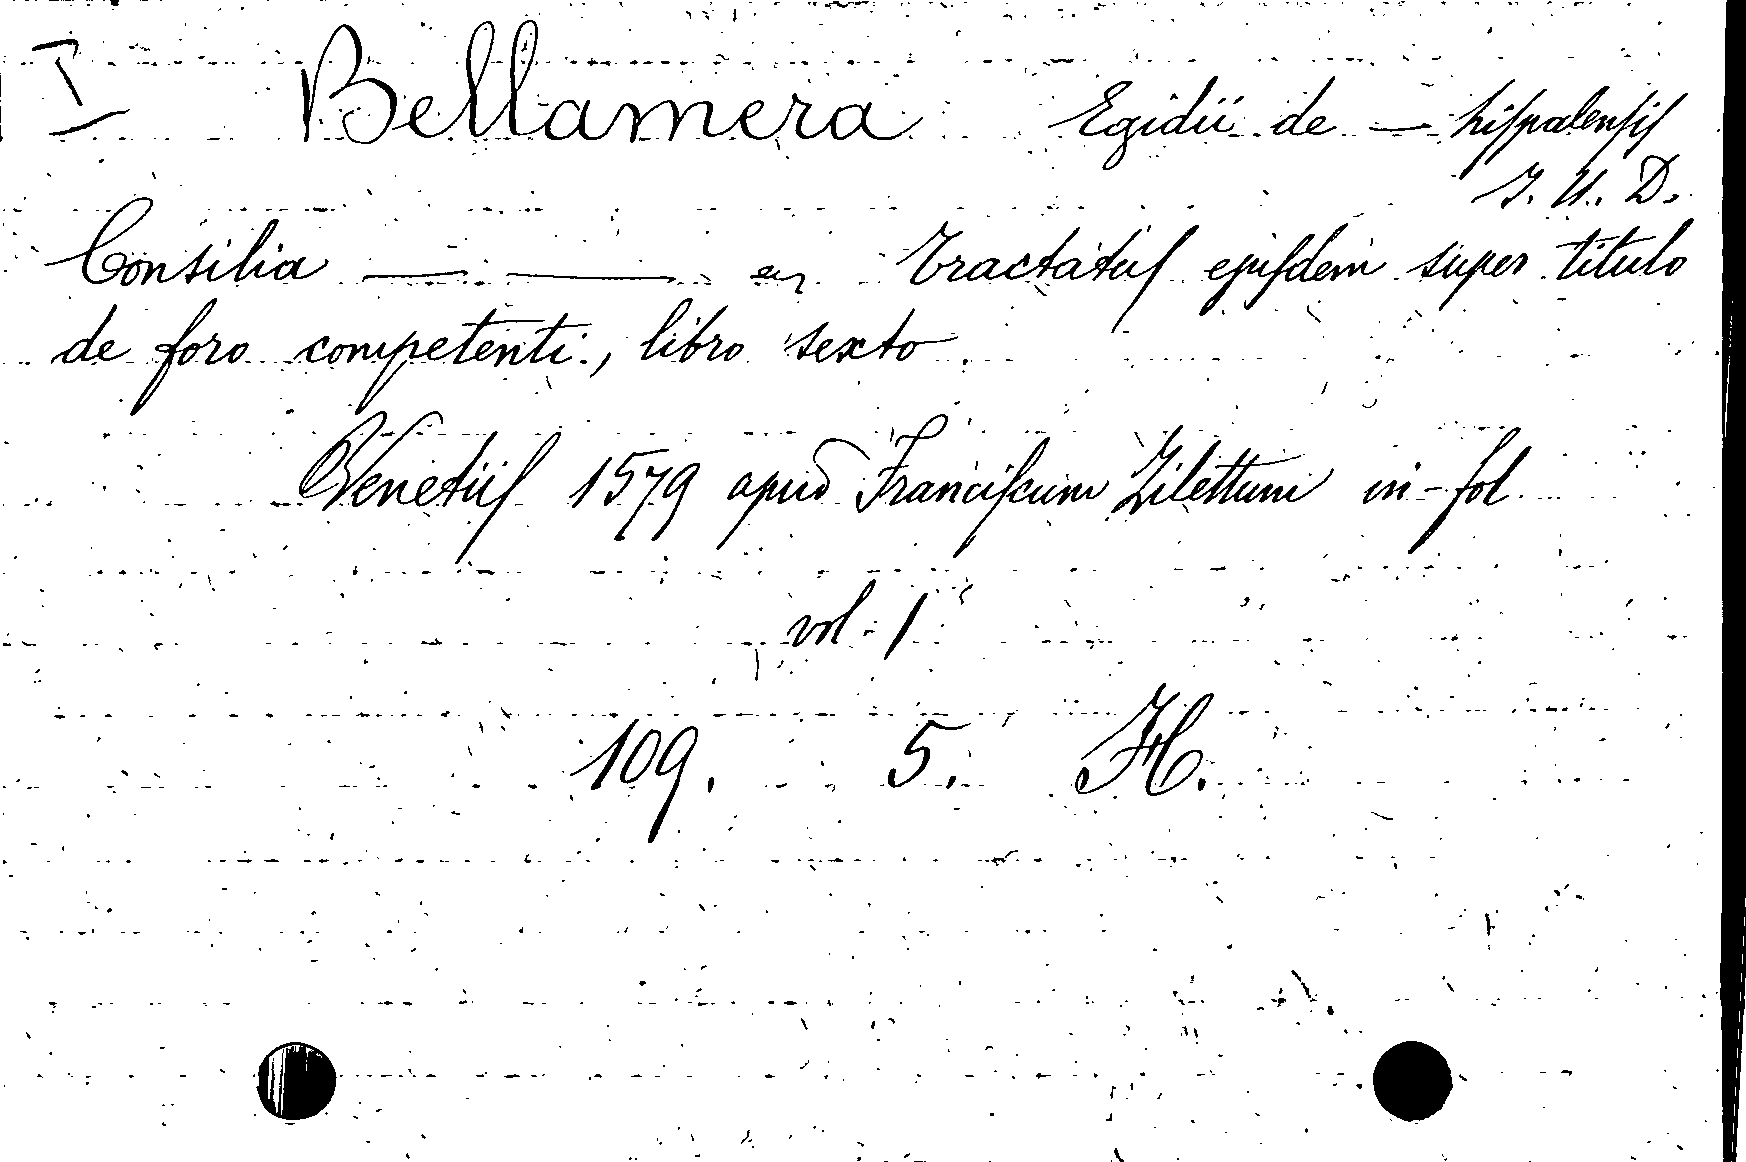 I Bellamera Egidii de — hiſpalenſiſ
J. U. D.
Consilia — — Tractatuſ ejuſdem super titulo
de foro competenti, libro sexto
Venetiiſ 1579 apud Franciſcum Zilettum in-fol
vol. 1
109. 5. H.